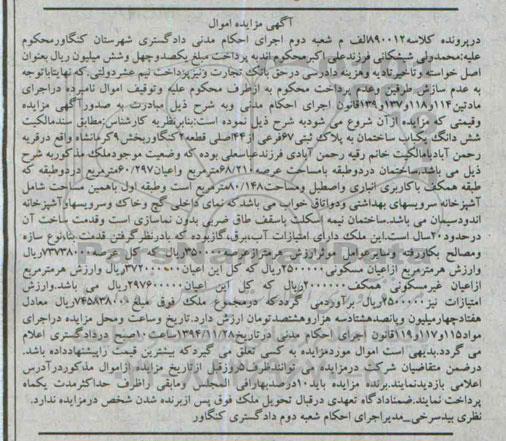 آگهی مزایده اموال
درپرونده کلاسه ۸۹۰۰۱۲الف م شعبه دوم اجرای احکام مدنی دادگستری شهرستان کنگاورمحکوم
علیه:محمدولی شیشکانی فرزندعلی اکبرمحکوم اندبه پرداخت مبلغ یکصدوچهل وشش میلیون ریال بعنوان
اصل خواسته وتاخیرتادیه وهزینه دادرسی درحق بانک تجارت ونیزپرداخت نیم عشردولتی.که نهایتاباتوجه
به عدم سازش طرفین وعدم پرداخت محکوم به ازطرف محکوم علیه وتوقیف اموال نامبرده دراجرای
مادتین۱۱۴و۱۱۸و۱۳۷و۱۳۹قانون اجرای احکام مدنی وبه شرح ذیل مبادرت به صدورآگهی مزایده
وقیمتی که مزایده ازآن شروع می شودبه شرح ذیل نموده است:بنابرنظریه کارشناس:مطابق سندمالکیت
شش دانگ یکباب ساختمان به پلاک ثبتی ۶۷فرعی از۴۴اصلی قطعه۲کنگاوربخش۹کرمانشاه واقع درقریه
رحمن آبادبامالکیت خانم رقیه رحمن آبادی فرزندعباسعلی بوده که وضعیت موجودملک مذکوربه شرح
ذیل می باشد.ساختمان دردوطبقه بامساحت عرصه۶۸/۲۱۰مترمربع واعیان۶۰/۲۹۷مترمربع دردوطبقه که
طبقه همکف باکاربری انباری واصطبل ومساحت۸۰/۱۴۸مترمربع است وطبقه اول باهمین مساحت شامل
آشپزخانه سرویسهای بهداشتی ودواتاق خواب می باشدکه نمای داخلی گچ وخاک وسرویسهاوآشپزخانه
اندودسیمان می باشد.ساختمان نیمه اسکلت باسقف طاق ضربی بدون نماسازی است وقدمت ساخت آن
درحدود۲۰سال است.این ملک دارای امتیازات آب،برق،گازبوده که بادرنظرگرفتن قدمت بنا،نوع سازه
ومصالح بکاررفته وسایرعوامل موثرارزش هرمترازعرصه۳۵۰۰۰۰ریال کل عرصه۷۳۷۳۸۰۰۰ریال
وارزش هرمترمربع ازاعیان مسکونی۲۵۰۰۰۰۰ریال که کل این اعیان۳۷۲۰۰۰۰۰۰ریال وارزش هرمترمربع
ازاعیان غیرمسکونی همکف۲۰۰۰۰۰۰ریال که کل این اعیان۲۹۷۶۰۰۰۰۰ریال می باشد.وارزش
امتیازات نیز۲۵۰۰۰۰۰ریال برآوردمی گرددکه درمجموع ملک فوق مبلغ۷۴۵۸۳۸۰۰۰ریال معادل
هفتادچهارمیلیون وپانصدهشتادسه هزاروهشتصدتومان ارزش دارد.تاریخ وساعت ومحل مزایده دراجرای
مواد۱۱۵و۱۱۷و۱۱۹قانون اجرای احکام مدنی درتاریخ۱۳۹۴/۱۱/۲۸ساعت۱۰صبح دردادگستری اعلام
می گردد.بدیهی است اموال موردمزایده به کسی تعلق می گیردکه بیشترین قیمت راپیشنهادداده باشد.
درضمن متقاضیان شرکت درمزایده می توانندظرف۵روزقبل ازتاریخ مزایده ازاموال مذکوردرآدرس
اعلامی بازدیدنمایند.برنده مزایده باید۱۰درصدبهارافی المجلس ومابقی راظرف حداکثرمدت یکماه
پرداخت نمایند.ضمنادادگاه تعهدی درقبال تحویل ملک فوق پس ازبرنده شدن شخص درمزایده ندارد.
نظری بیدسرخی_مدیراجرای احکام شعبه دوم دادگستری کنگاور